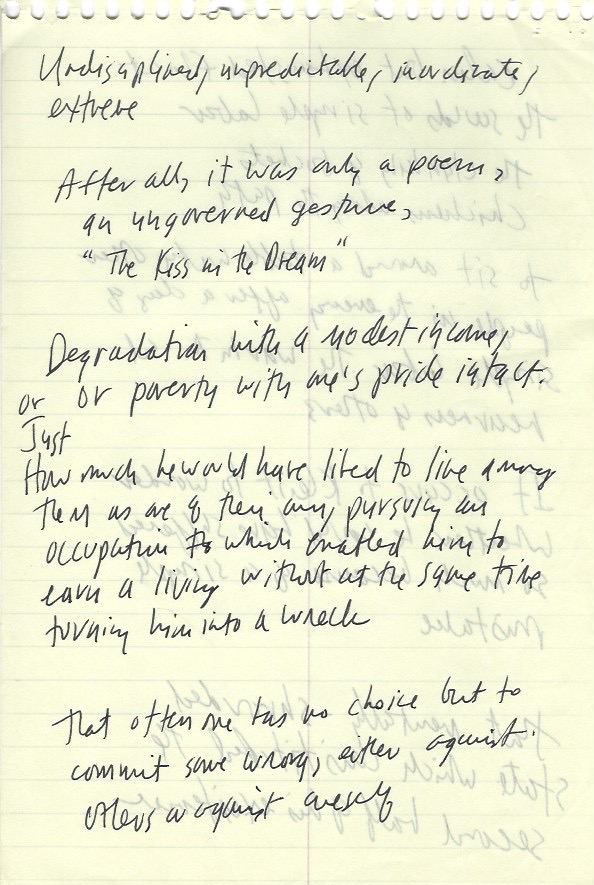 Undisciplined, unpredictable, inordinate,
extreme
After all, it was only a poem,
an ungoverned gesture,
"The Kiss in the Dream"
Degradation with a modest income,
or or poverty with one's pride intact.
Just
How much he would have liked to live among
them as one of their own, pursuing an
occupation which enabled him to
earn a living without at the same time
turning him into a wreck
That often one has no choice but to
commit some wrong, either against
others or against oneself